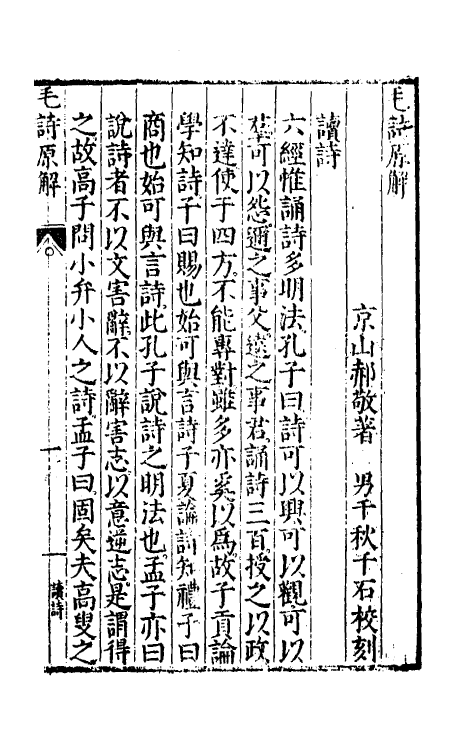 毛詩原解
京山郝敬著　男千秋千石校刻
讀詩
六經惟誦詩多明法孔子曰詩可以興可以觀可以
羣可以怨邇之事父遠之事君誦詩三百授之以政
不達使于四方不能專對雖多亦奚以為故子貢論
學知詩子曰賜也始可與言詩子夏論詩知禮子曰
商也始可與言詩此孔子說詩之明法也孟子亦曰
說詩者不以文害辭不以辭害志以意逆志是謂得
之故高子問小弁小人之詩孟子曰固矣夫高叟之
毛詩原解　一　讀詩